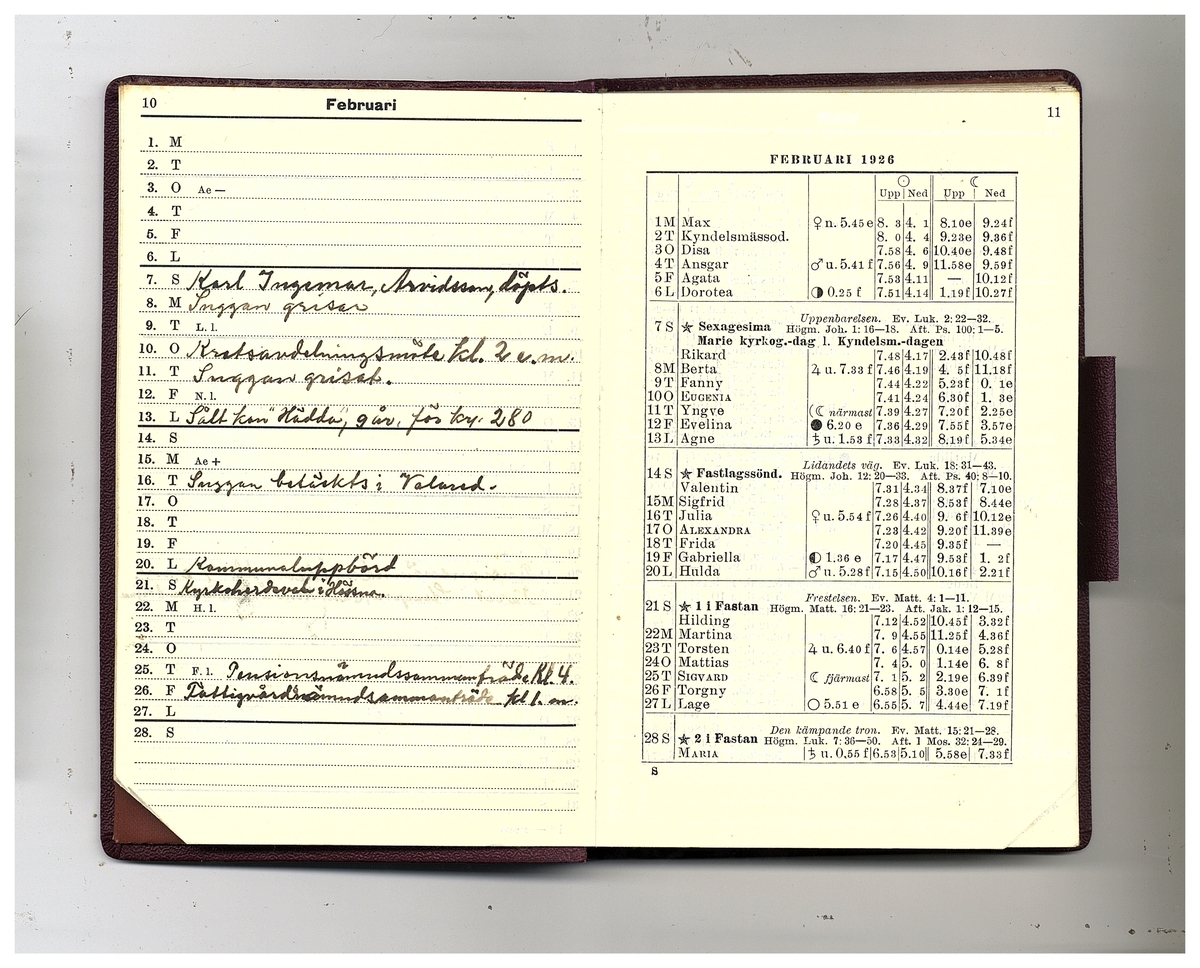 10 Februari
1. M
2. T
3. O Ae —
4. T
5. F
6. L
7. S Karl Ingemar, Arvidsson, döpts.
8. M Suggan grisar
9. T L. l.
10. O Kretsavdelningsmöte kl. 2 e.m.
11. T Suggan grisat.
12. F N. l.
13. L Sålt kon "Hädda", 9 år, för kr. 280
14. S
15. M Ae +
16. T Suggan betäckts i Valared.
17. O
18. T
19. F
20. L Kommunaluppbörd
21. S Kyrkoherdeval i Hössna.
22. M H. l.
23. T
24. O
25. T F. l. Pensionsnämndssammanträde Kl. 4.
26. F Fattigvårdsnämndsammanträde kl 1.
27. L
28. S
11
FEBRUARI 1926
☉ ☾
Upp Ned Upp Ned
1 M Max ♀ n. 5.45 e 8. 3 4. 1 8.10e 9.24f
2 T Kyndelsmässod. 8. 0 4. 4 9.23e 9.36f
3 O Disa 7.58 4. 6 10.40e 9.48f
4 T Ansgar ♂ u. 5.41 f 7.56 4. 9 11.58e 9.59f
5 F Agata 7.53 4.11 — 10.12f
6 L Dorotea ◑ 0.25 f 7.51 4.14 1.19f 10.27f
Uppenbarelsen. Ev. Luk. 2: 22—32.
7 S ★ Sexagesima Högm. Joh. 1: 16—18. Aft. Ps. 100: 1—5.
Marie kyrkog.-dag l. Kyndelsm.-dagen
Rikard 7.48 4.17 2.43f 10.48f
8 M Berta ♃ u. 7.33 f 7.46 4.19 4. 5f 11.18f
9 T Fanny 7.44 4.22 5.23f 0. 1e
10 O EUGENIA 7.41 4.24 6.30f 1. 3e
11 T Yngve (☾ närmast 7.39 4.27 7.20f 2.25e
12 F Evelina ● 6.20 e 7.36 4.29 7.55f 3.57e
13 L Agne ♄ u. 1.53 f 7.33 4.32 8.19f 5.34e
Lidandets väg. Ev. Luk. 18: 31—43.
14 S ★ Fastlagssönd. Högm. Joh. 12: 20—33. Aft. Ps. 40: 8—10.
Valentin 7.31 4.34 8.37f 7.10e
15 M Sigfrid 7.28 4.37 8.53f 8.44e
16 T Julia ♀ u. 5.54 f 7.26 4.40 9. 6f 10.12e
17 O ALEXANDRA 7.23 4.42 9.20f 11.39e
18 T Frida 7.20 4.45 9.35f —
19 F Gabriella ◐ 1.36 e 7.17 4.47 9.53f 1. 2f
20 L Hulda ♂ u. 5.28 f 7.15 4.50 10.16f 2.21f
Frestelsen. Ev. Matt. 4: 1—11.
21 S ★ 1 i Fastan Högm. Matt. 16: 21—23. Aft. Jak. 1: 12—15.
Hilding 7.12 4.52 10.45f 3.32f
22 M Martina 7. 9 4.55 11.25f 4.36f
23 T Torsten ♃ u. 6.40 f 7. 6 4.57 0.14e 5.28f
24 O Mattias 7. 4 5. 0 1.14e 6. 8f
25 T SIGVARD ☾ fjärmast 7. 1 5. 2 2.19e 6.39f
26 F Torgny 6.58 5. 5 3.30e 7. 1f
27 L Lage ○ 5.51 e 6.55 5. 7 4.44e 7.19f
Den kämpande tron. Ev. Matt. 15: 21—28.
28 S ★ 2 i Fastan Högm. Luk. 7: 36—50. Aft. 1 Mos. 32: 24—29.
MARIA ♄ u. 0.55 f 6.53 5.10 5.58e 7.33f
S